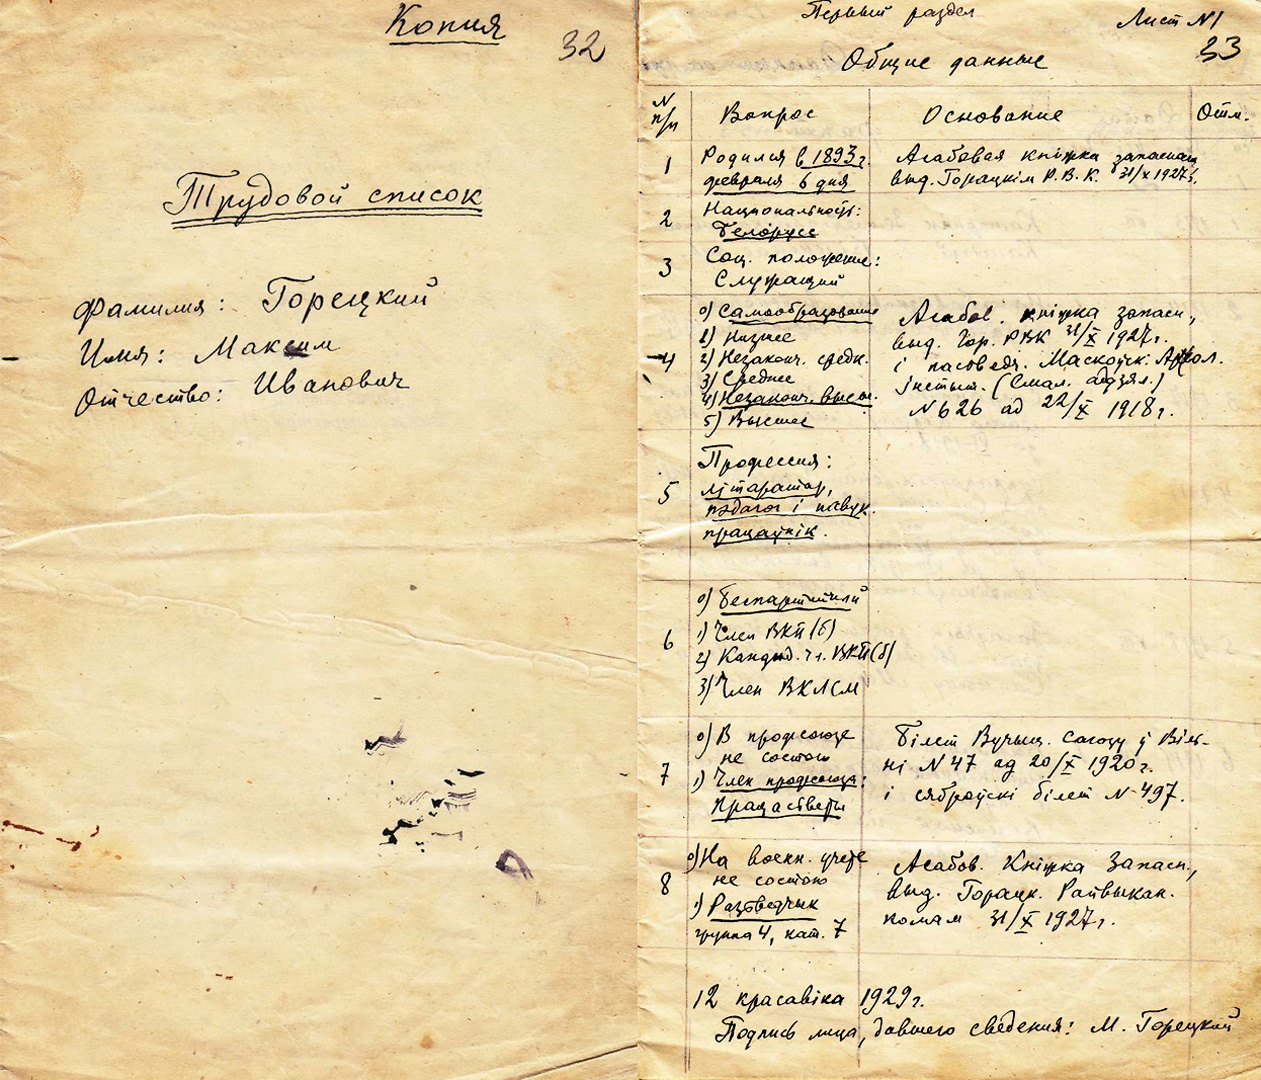 Копия
32
Трудовой список
Фамилия: Горецкий
Имя: Максим
Отчество: Иванович
Первый раздел
Лист N1
33
Общие данные
N п/п
Вопрос
Основание
Отм.
1
Родился в 1893 г.
февраля 6 дня
Асабовая кніжка запаснога
выд. Горацкім Р.В.К. 31/X 1927 г.
2
Национальность:
Белорусс
3
Соц. положение:
Служащий
4
0) Самообразование
1) Низшее
2) Незаконч. средн.
3) Среднее
4) Незаконч. высш.
5) Высшее
Асабов. кніжка запасн.,
выд. Гор. РВК 31/X 1927 г.
і пасведч. Маскоўск. Археол.
Інстыт. (Смал. аддзял.)
N 626 ад 22/X 1918 г.
5
Профессия:
літаратар,
пэдагог і навук.
працаўнік.
6
0) Беспартийный
1) Член ВКП(б)
2) Канд. чл. ВКП(б)
3) Член ВКЛСМ
7
0) В профсоюзе
не состою
1) Член профсоюза:
Працасветы
Білет Вучыц. саюзу ў Віль-
ні N 47 ад 20/X 1920 г.
і сяброўскі білет N 497.
8
0) На воен. учете
не состою
1) Разведчик
группа 4, кат. 7
Асабов. Кніжка Запасн.,
выд. Горацк. Райвыкан-
комам 31/X 1927 г.
12 красавіка 1929 г.
Подпись лица, давшего сведения: М. Горецкий